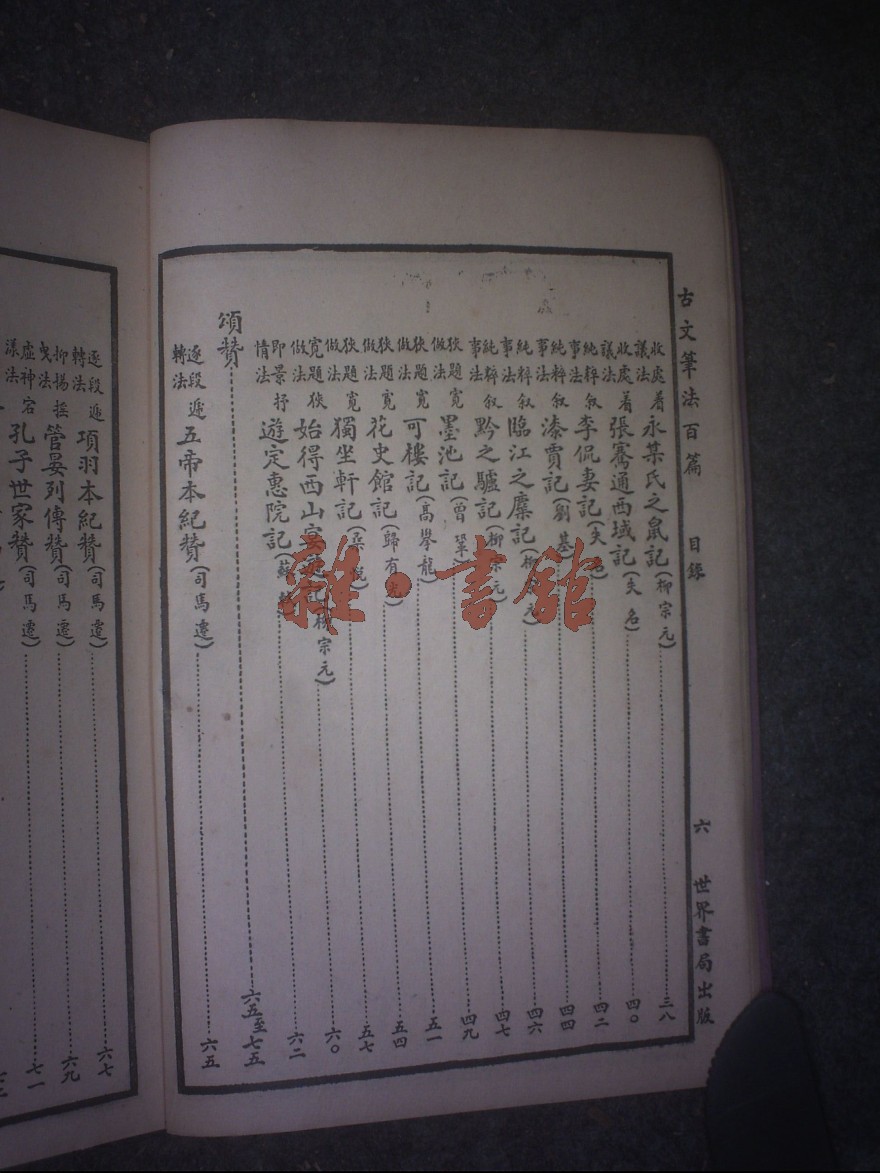 古文筆法百篇 目錄 六 世界書局出版
收處着議法 永某氏之鼠記(柳宗元) 三八
收處着議法 張騫通西域記(失名) 四〇
純粹叙事法 李侃妻記(失 四二
純粹叙事法 漆賈記(劉基 四四
純粹叙事法 臨江之麋記(柳宗元) 四六
純粹叙事法 黔之驢記(柳宗元) 四七
狹題寬做法 墨池記(曾鞏 四九
狹題寬做法 可樓記(高攀龍) 五一
狹題寬做法 花史館記(歸有光) 五四
狹題寬做法 獨坐軒記( 五七
寬題狹做法 始得西山宴遊記(柳宗元) 六〇
即景抒情法 遊定惠院記(蘇軾 六二
頌贊 六五至七五
逐段遞轉法 五帝本紀贊(司馬遷) 六五
逐段遞轉法 項羽本紀贊(司馬遷) 六七
抑揚搖曳法 管晏列傳贊(司馬遷) 六九
虛神宕漾法 孔子世家贊(司馬遷) 七一
雜·書館